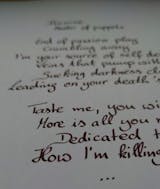 Master of puppets
End of passion play
Crumbling away
I'm your source of self des
Veins that pump with
Sucking darkness cl
Leading on your death'
Taste me, you wi
More is all you n
Dedicated t
How I'm killin
...